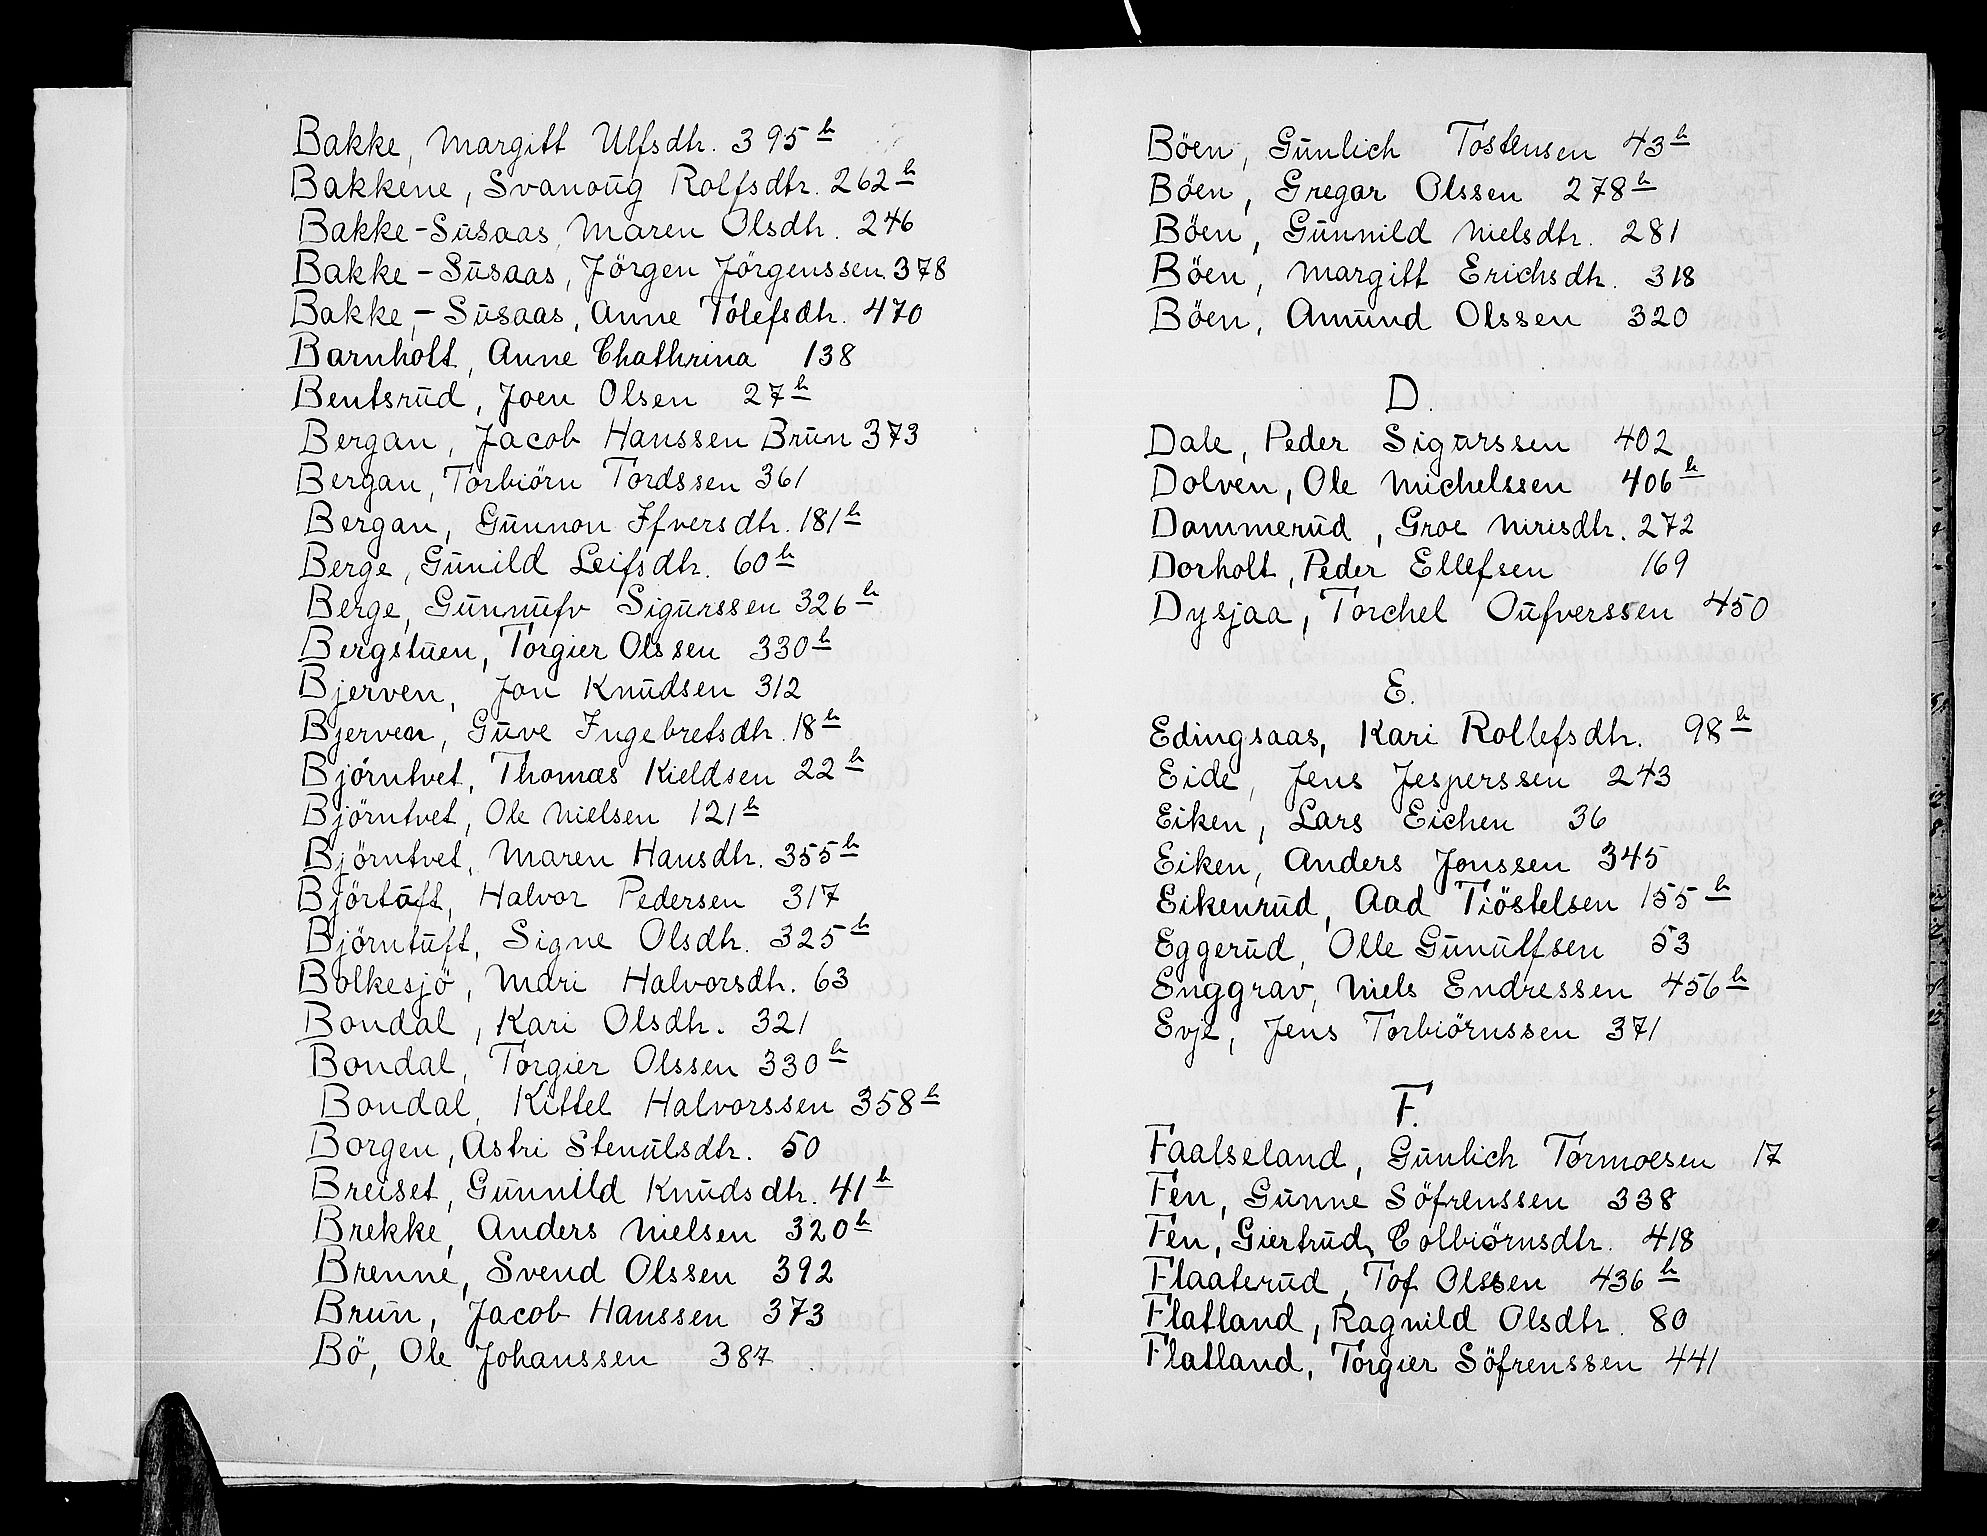 Bakke, Margitt Ulfsdtr. 395 b
Bakkene, Svanoug Rolfsdtr. 262 b
Bakke-Susaas, Maren Olsdtr. 246
Bakke-Susaas, Jörgen Jörgenssen 378
Bakke,-Susaas, Anne Tolefsdtr. 470
Barnholt, Anne Chathrina 138
Bentsrud, Joen Olsen 27 b
Bergan, Jacob Hanssen Brun 373
Bergan, Torbiörn Tordssen 361
Bergan, Gunnon Ifversdtr. 181 b
Berge, Gunild Leifsdtr. 60 b
Berge, Gunnufv Sigurssen 326 b
Bergstuen, Torgier Olssen 330 b
Bjerven, Jon Knudsen 312
Bjerven, Guve Ingebretsdtr. 18 b
Björntvet, Thomas Kieldsen 22 b
Björntvet, Ole Nielsen 121 b
Björntvet, Maren Hansdtr. 355 b
Björtuft, Halvor Pedersen 317
Björntuft, Signe Olsdtr. 325 b
Bolkesjö, Mari Halvorsdtr. 63
Bondal, Kari Olsdtr. 321
Bondal, Torgier Olssen 330 b
Bondal, Kittel Halvorssen 358 b
Borgen, Astri Stenulsdtr. 50
Breiset, Gunnild Knudsdtr. 41 b
Brekke, Anders Nielsen 320 b
Brenne, Svend Olssen 392
Brun, Jacob Hanssen 373
Bö, Ole Johanssen 387
Böen, Gunlich Tostensen 43 b
Böen, Gregar Olssen 278 b
Böen, Gunnild Nielsdtr. 281
Böen, Margitt Erichsdtr. 318
Böen, Amund Olssen 320
D.
Dale, Peder Sigurssen 402
Dolven, Ole Michelssen 406 b
Dammerud, Groe Nirisdtr. 272
Dorholt, Peder Ellefsen 169
Dysjaa, Torchel Oufverssen 450
E.
Edingsaas, Kari Rollefsdtr. 98 b
Eide, Jens Jesperssen 243
Eiken, Lars Eichen 36
Eiken, Anders Jonssen 345
Eikenrud, Aad Tiöstelsen 155 b
Eggerud, Olle Gunulfsen 53
Enggrav, Niels Endressen 456 b
Evje, Jens Torbiörnssen 371
F.
Faalseland, Gunlich Tormoesen 17
Fen, Gunne Söfrenssen 338
Fen, Giertrud Colbiörnsdtr. 418
Flaaterud, Tof Olssen 436 b
Flatland, Ragnild Olsdtr. 80
Flatland, Torgier Söfrenssen 441